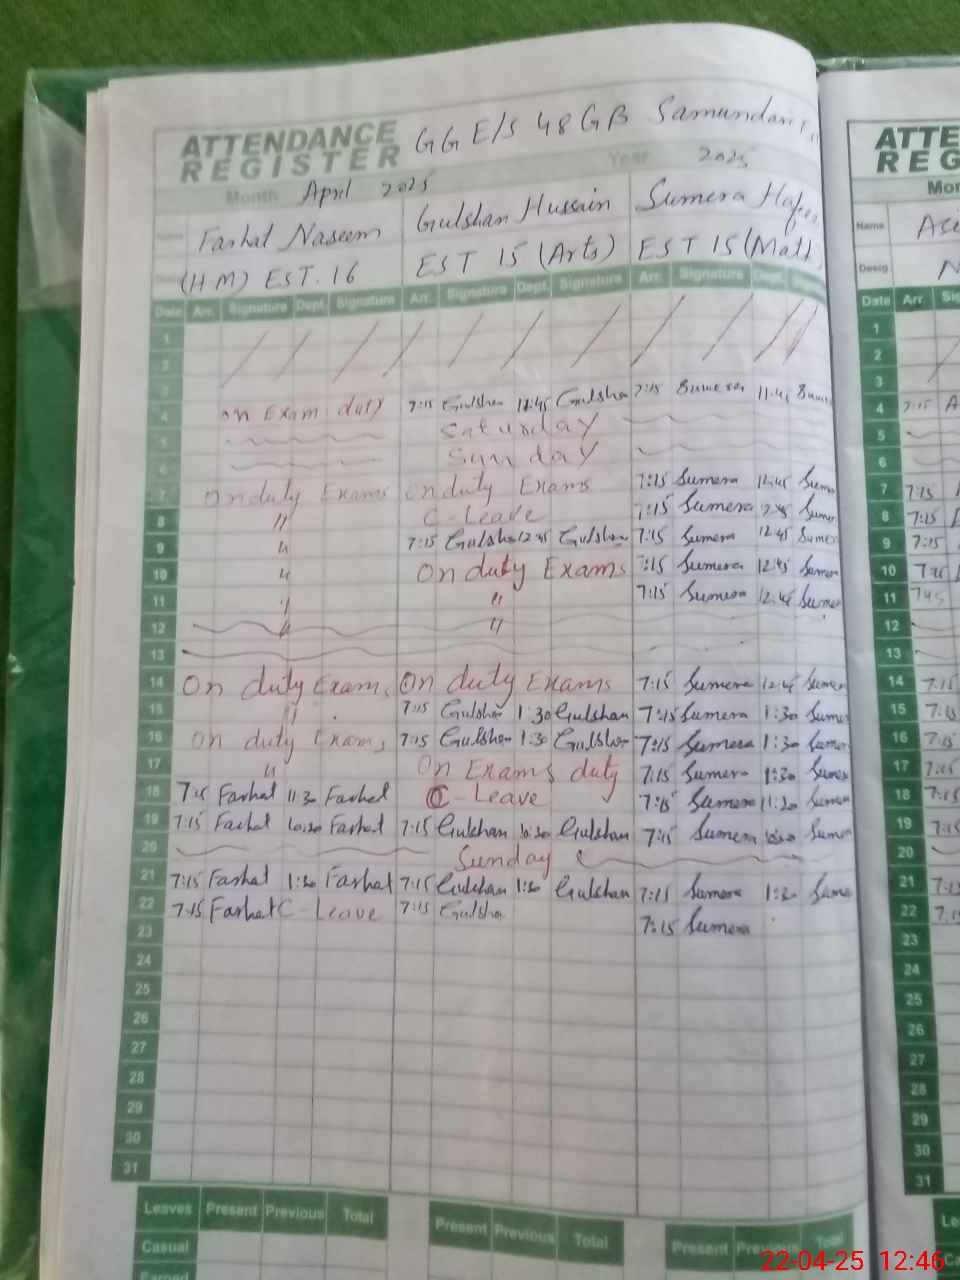 ATTENDANCE REGISTER GGE/S 48 GB Samundari
Month April 2025 Year 2025
Name Farhat Naseem Gulshan Hussain Sumera
(HM) EST. 16 EST 15 (Arts) EST 15 (Math)
Date Arr. Signature Dept. Signature Arr. Signature Dept. Signature Arr. Signature Dept.
1
2
3
4 On Exam duty 7:15 Gulshan 11:45 Gulshan 7:15 Sumera 11:45
5 Saturday
6 Sunday
7 On duty Exams On duty Exams 7:15 Sumera 12:45
8 〃 C-Leave 7:15 Sumera
9 〃 7:15 Gulshan 12:45 Gulshan 7:15 Sumera 12:45
10 〃 On duty Exams 7:15 Sumera 12:45
11 〃 〃 7:15 Sumera 12:45
12 〃 〃
13
14 On duty Exam, On duty Exams 7:15 Sumera 12:45
15 〃 7:15 Gulshan 1:30 Gulshan 7:15 Sumera 1:30
16 On duty Exam, 7:15 Gulshan 1:30 Gulshan 7:15 Sumera 1:30
17 〃 On Exams duty 7:15 Sumera 1:30
18 7:15 Farhat 11:30 Farhat C-Leave 7:15 Sumera 11:30
19 7:15 Farhat 10:30 Farhat 7:15 Gulshan 10:30 Gulshan 7:15 Sumera 10:30
20 Sunday
21 7:15 Farhat 1:30 Farhat 7:15 Gulshan 1:30 Gulshan 7:15 Sumera 1:30
22 7:15 Farhat C-Leave 7:15 Gulshan
23 7:15 Sumera
24
25
26
27
28
29
30
31
Leaves Present Previous Total Present Previous Total Present Previous Total
Casual
Earned
Name
Desig.
Date Arr.
1
2
3
4 7:15
5
6
7 7:15
8 7:15
9 7:15
10
11
12
13
14 7:15
15
16 7:15
17
18 7:15
19 7:15
20
21 7:15
22 7:15
23
24
25
26
27
28
29
30
31
22-04-25 12:46